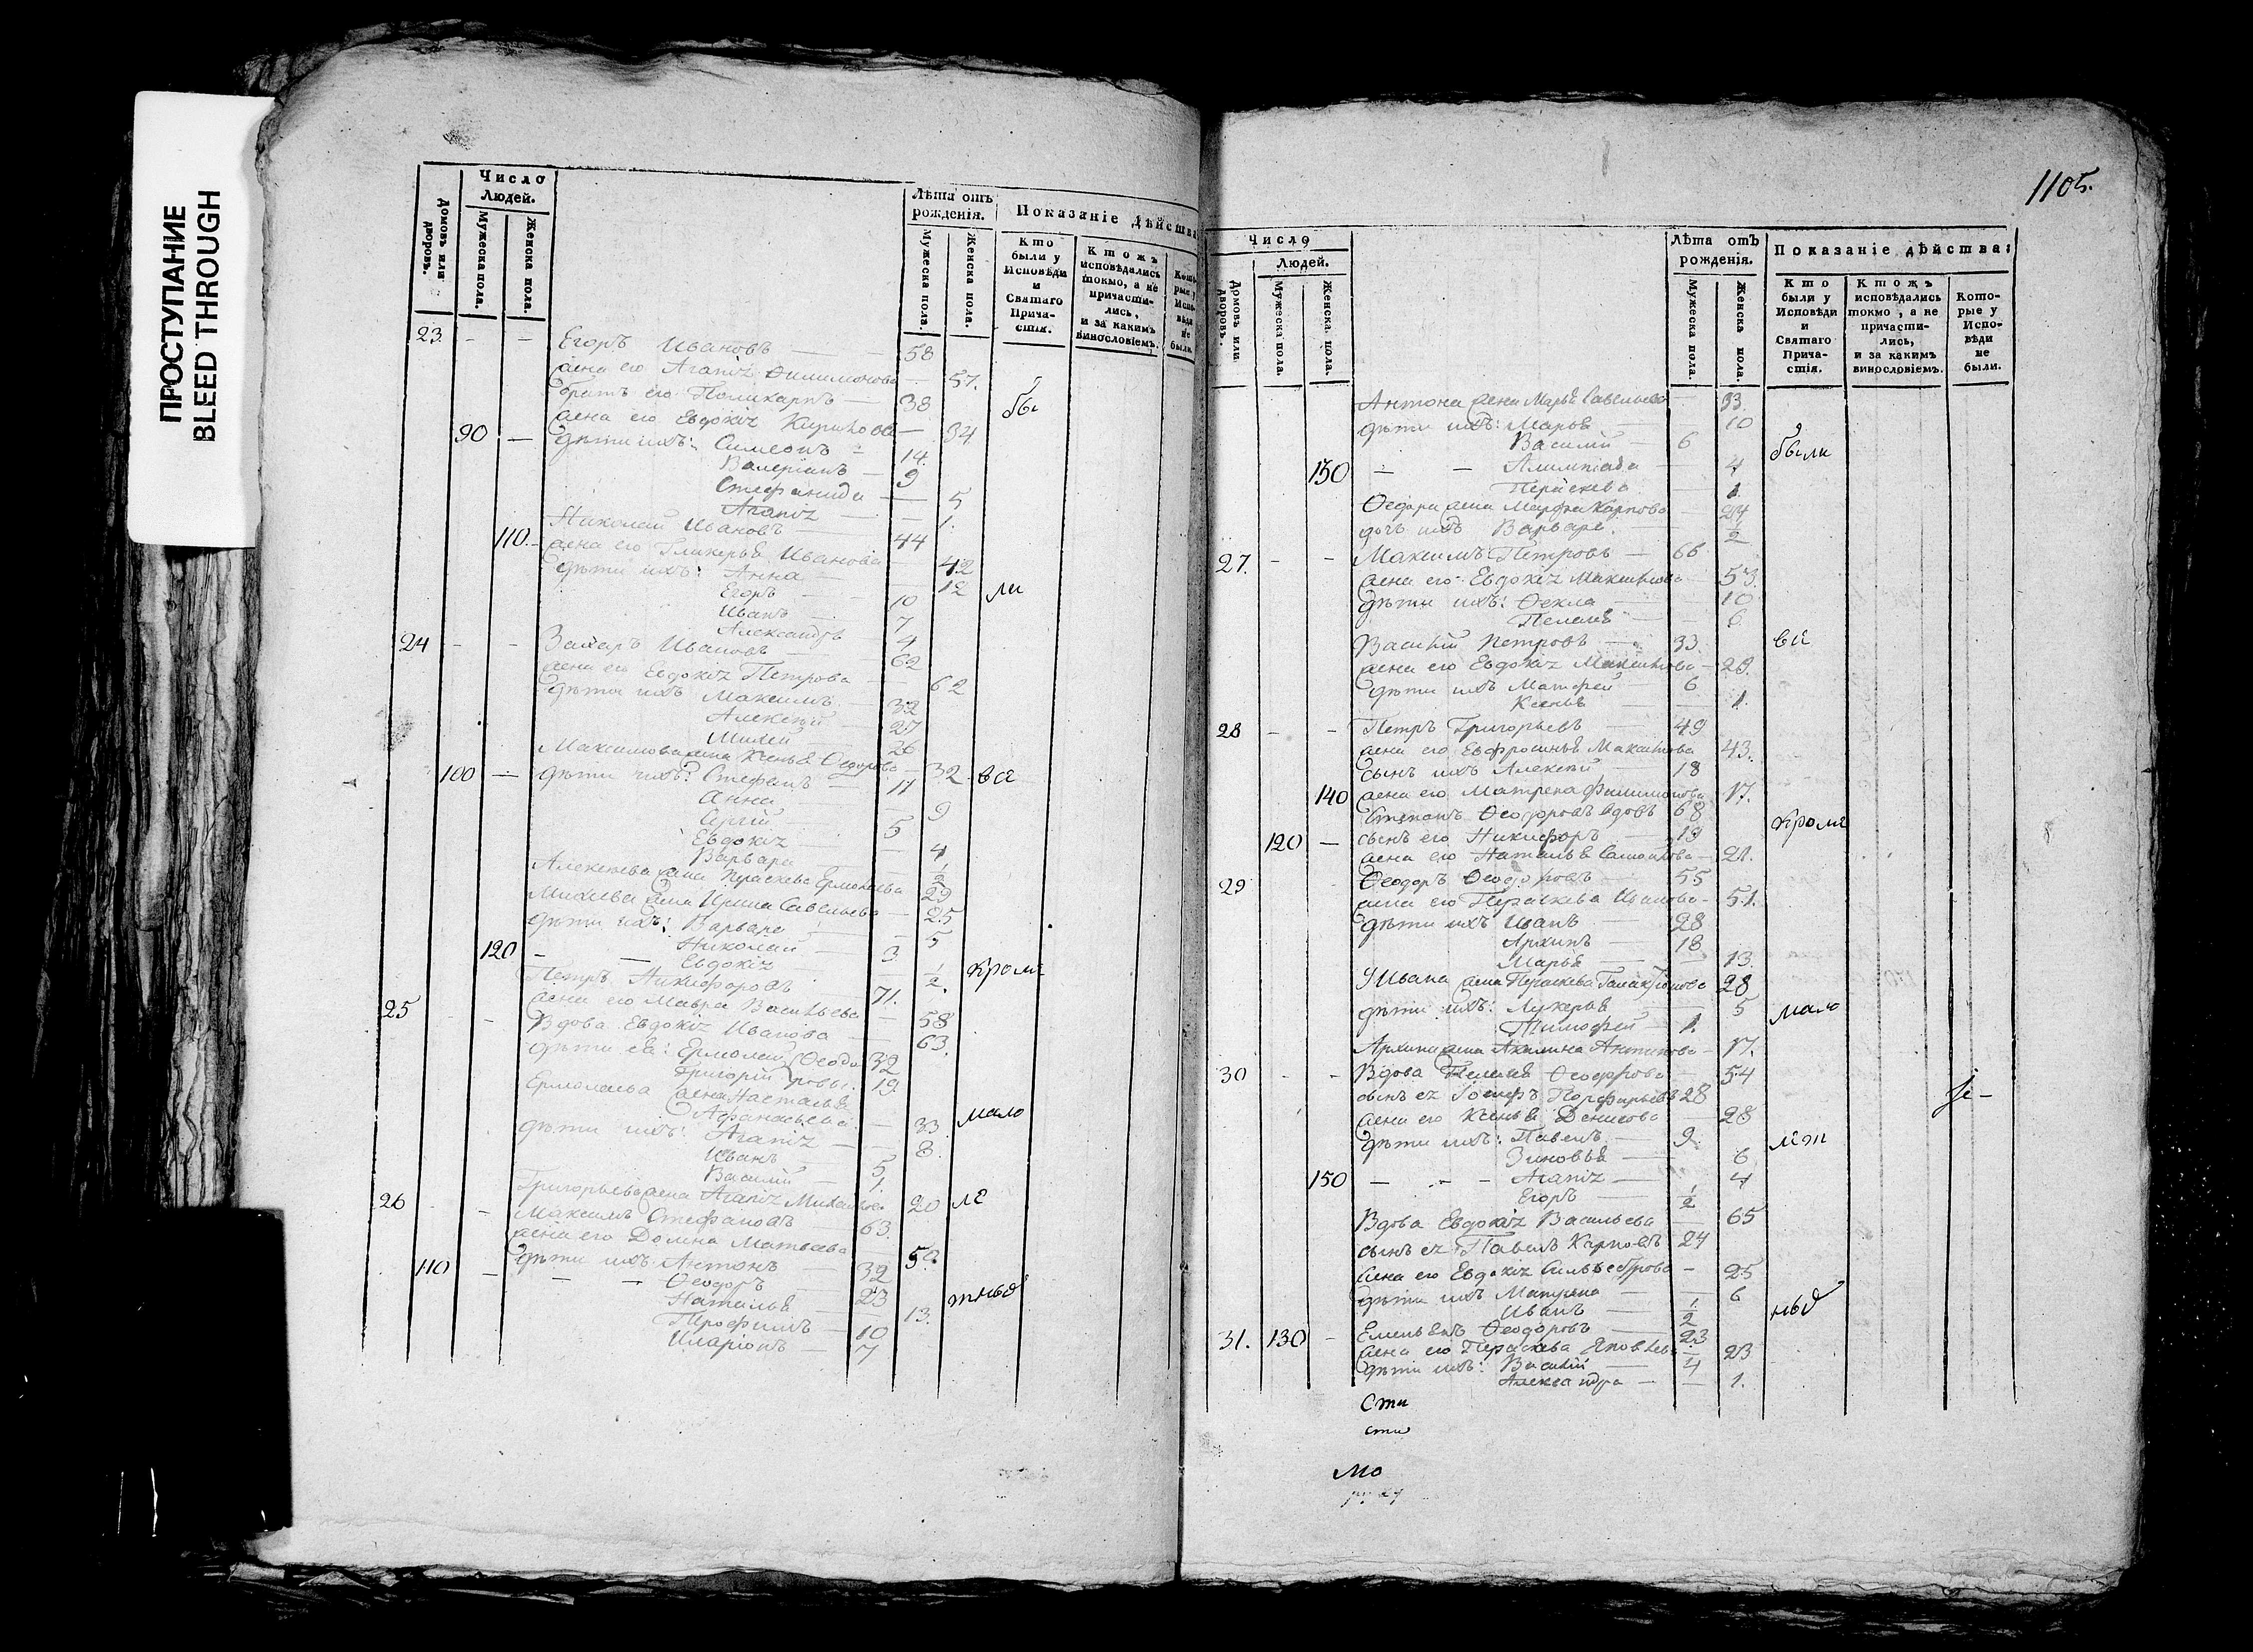 ПРОСТУПАНИЕ
BLEED THROUGH
Число Людей.
Домовъ или дворовъ.
Мужеска пола.
Женска пола.
Лѣта отъ рожденія.
Мужеска пола.
Женска пола.
Показаніе дѣйства
Кто были у Исповѣди и Святаго Причастія.
Ктожъ исповѣдались токмо, а не причастились, и за какимъ винословіемъ.
Которые у Исповѣди не были.
23. - - Егоръ Ивановъ — 58
жена его Агапія Филимонова — 57.
братъ его Поликарпъ — 38 бы
жена его Евдокія — 34
90 — дѣти ихъ: Симеонъ — 14.
Валеріанъ — 9
Стефанида — 5
Агапія — 1.
Николай Ивановъ 44
110. жена его Гликерья Иванова 42
дѣти ихъ: Анна — 12 ли
Егоръ — 10
Иванъ 7
Александръ — 4
24 - - Захаръ Ивановъ 62
жена его Евдокія Петрова — 62
дѣти ихъ Максимъ — 32
Алексѣй — 27
Михей 26
Максимова жена Ксенья Ѳедорова 32 всѣ
100 — дѣти ихъ: Стефанъ — 11
Анна 9
Сергій — 5
Евдокія 4
Варвара — 1/2
Алексѣева жена Параскева Ермолаева 29
Михеева жена Ирина Савельева — 25
дѣти ихъ: Варвара — 5
120 - — Николай — 3
Евдокія 1/2. кромѣ
25 - - Петръ Никифоровъ 71.
жена его Мавра Васильева — 58
Вдова Евдокія Иванова — 63.
дѣти ея: Ермолай Ѳеодо 32
Григорій ровы. 19.
Ермолаева жена Наталья
Афанасьева. — 33 мало
дѣти ихъ: Агапія — 8.
Иванъ 5
Василій — 1.
Григорьева жена Агапія Михайлова 20 лѣ
26 - - Максимъ Стефановъ 63.
жена его Домна Матвеева 59
110 — дѣти ихъ. Антонъ — 32
Ѳеодоръ 23
Наталья — 13. тныхъ
Трофимъ — 10
Иларіонъ — 7
1105.
Число Людей.
Домовъ или дворовъ.
Мужеска пола.
Женска пола.
Лѣта отъ рожденія.
Мужеска пола.
Женска пола.
Показаніе дѣйства:
Кто были у Исповѣди и Святаго Причастія.
Ктожъ исповѣдались токмо, а не причастились, и за какимъ винословіемъ.
Которые у Исповѣди не были.
Антона жена Марья Савельева 33.
дѣти ихъ: Марья 10
Василій — 6 были
130 — — Алимпіада — 4
Параскева 1.
Ѳедора жена Марфа Карпова — 24
дочь ихъ Варвара. 1/2
27. - - Максимъ Петровъ — 66
жена его Евдокія Максимова 53.
дѣти ихъ: Ѳекла 10
Пелагея 6.
Василій Петровъ — 33. всѣ
жена его Евдокія 29.
дѣти ихъ Матфей 6
Ксенья 1.
28 - - Петръ Григорьевъ — 49
жена его Евфросинья 43.
сынъ ихъ Алексѣй — 18
140 жена его Матрена Филимонова 17.
Степанъ Ѳеодоровъ вдовъ 68
120 — сынъ его Никифоръ — 19 кромѣ
жена его Наталья — 21.
29 Ѳеодоръ Ѳеодоровъ 55
жена его Параскева Иванова — 51.
дѣти ихъ Иванъ — 28
Архипъ 18
Марья — 13
У Ивана жена Параскева Галактіонова 28
дѣти ихъ: Лукерья 5 мало
Тимофей — 1.
Архипа жена Акилина Антипова — 17.
30 - - Вдова Пелагея Ѳеодорова 54
сынъ ея Іосифъ Порфирьевъ 28
жена его Ксенья Денисова 28
дѣти ихъ: Павелъ — 9. лѣт
Зиновья — 6
150 — — Агапія — 4
Егоръ — 1/2
Вдова Евдокія Васильева 65
сынъ ея Павелъ Карповъ 24
жена его Евдокія Сильвестрова — 25
дѣти ихъ Матрена — 6
Иванъ 1/2 ныхъ
31. 130 - Емельянъ Ѳеодоровъ 23
жена его Параскева Яковлева — 23
дѣти ихъ: Василій — 4
Александра — — 1.
Сти
сти
Мо